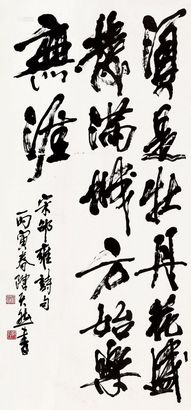 須是牡丹花盛
發滿城方始樂
無涯
宋邵雍詩句
丙寅春陳天然書